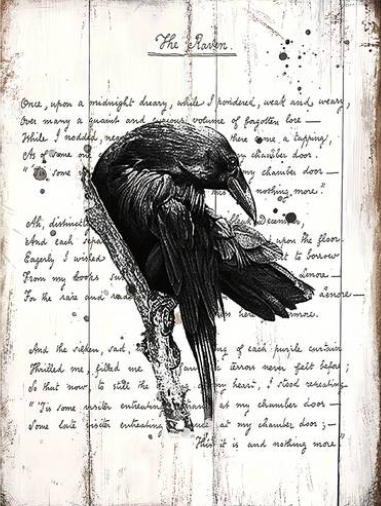 The Raven.
Once, upon a midnight dreary, while I pondered, weak and weary,
Over many a quaint and curious volume of forgotten lore —
While I nodded, there came a tapping,
As of some one my chamber door.
"'Tis some my chamber door —
nothing more."
Ah, distinctly December,
And each upon the floor.
Eagerly I wished to borrow
From my books Lenore —
For the rare and Lenore —
here more.
And the silken, sad, of each purple curtain
Thrilled me, filled me terrors never felt before;
So that now, to still the of my heart, I stood repeating
"'Tis some visiter entreating at my chamber door —
Some late visiter entreating at my chamber door; —
This it is and nothing more."